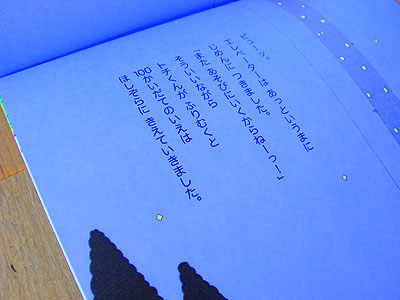 シューッ。
エレベーターは あっというまに
じめんに つきました。
「また あそびにいくからねーっ！」
そういいながら
トチくんが ふりむくと
100かいだてのいえは
ほしぞらに きえて いきました。